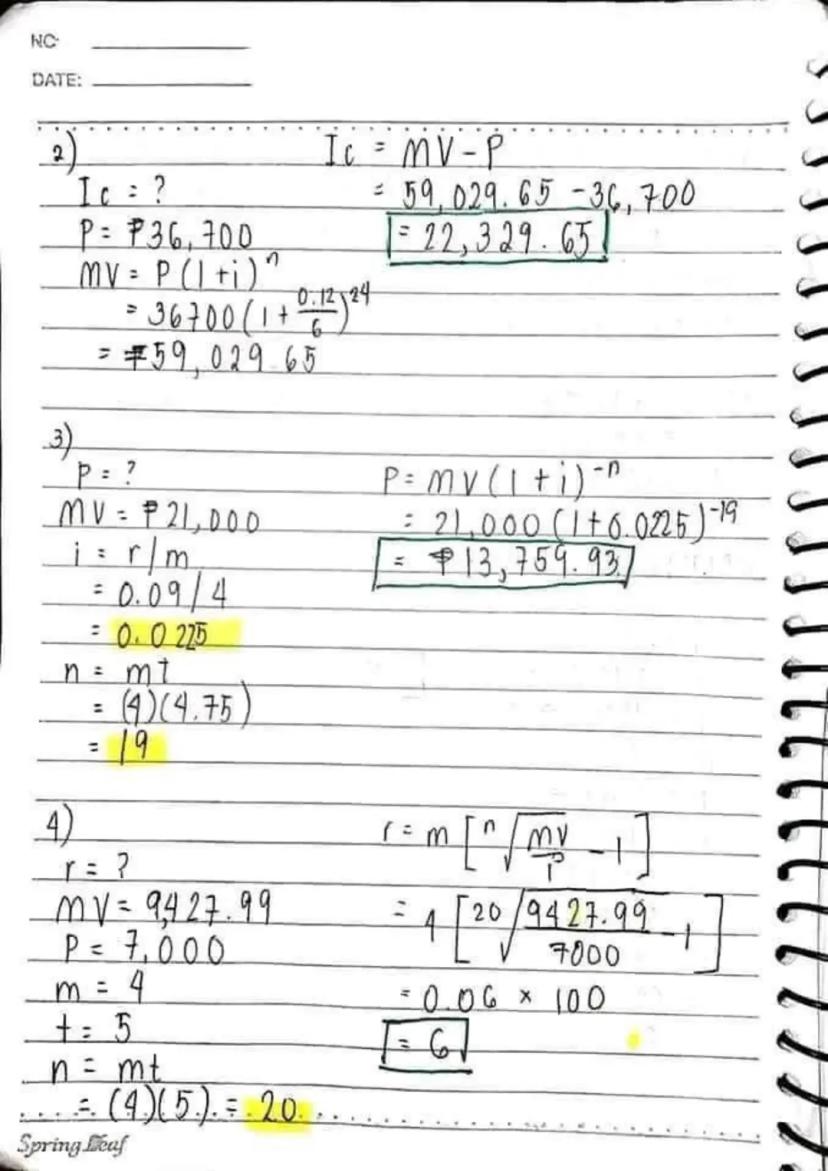 NO:
DATE:
2)
Ic = ?
P = ₱36,700
MV = P(1+i)^n
= 36700(1+0.12/6)^24
= ₱59,029.65
Ic = MV-P
= 59,029.65 - 36,700
= 22,329.65
3)
P = ?
MV = ₱21,000
i = r/m
= 0.09/4
= 0.0225
n = mt
= (4)(4.75)
= 19
P = MV(1+i)^-n
= 21,000(1+0.0225)^-19
= ₱13,759.93
4)
r = ?
MV = 9,427.99
P = 7,000
m = 4
t = 5
n = mt
= (4)(5) = 20
r = m[n√(MV/P) - 1]
= 4[20√(9427.99/7000) - 1]
= 0.06 × 100
= 6
Spring Leaf